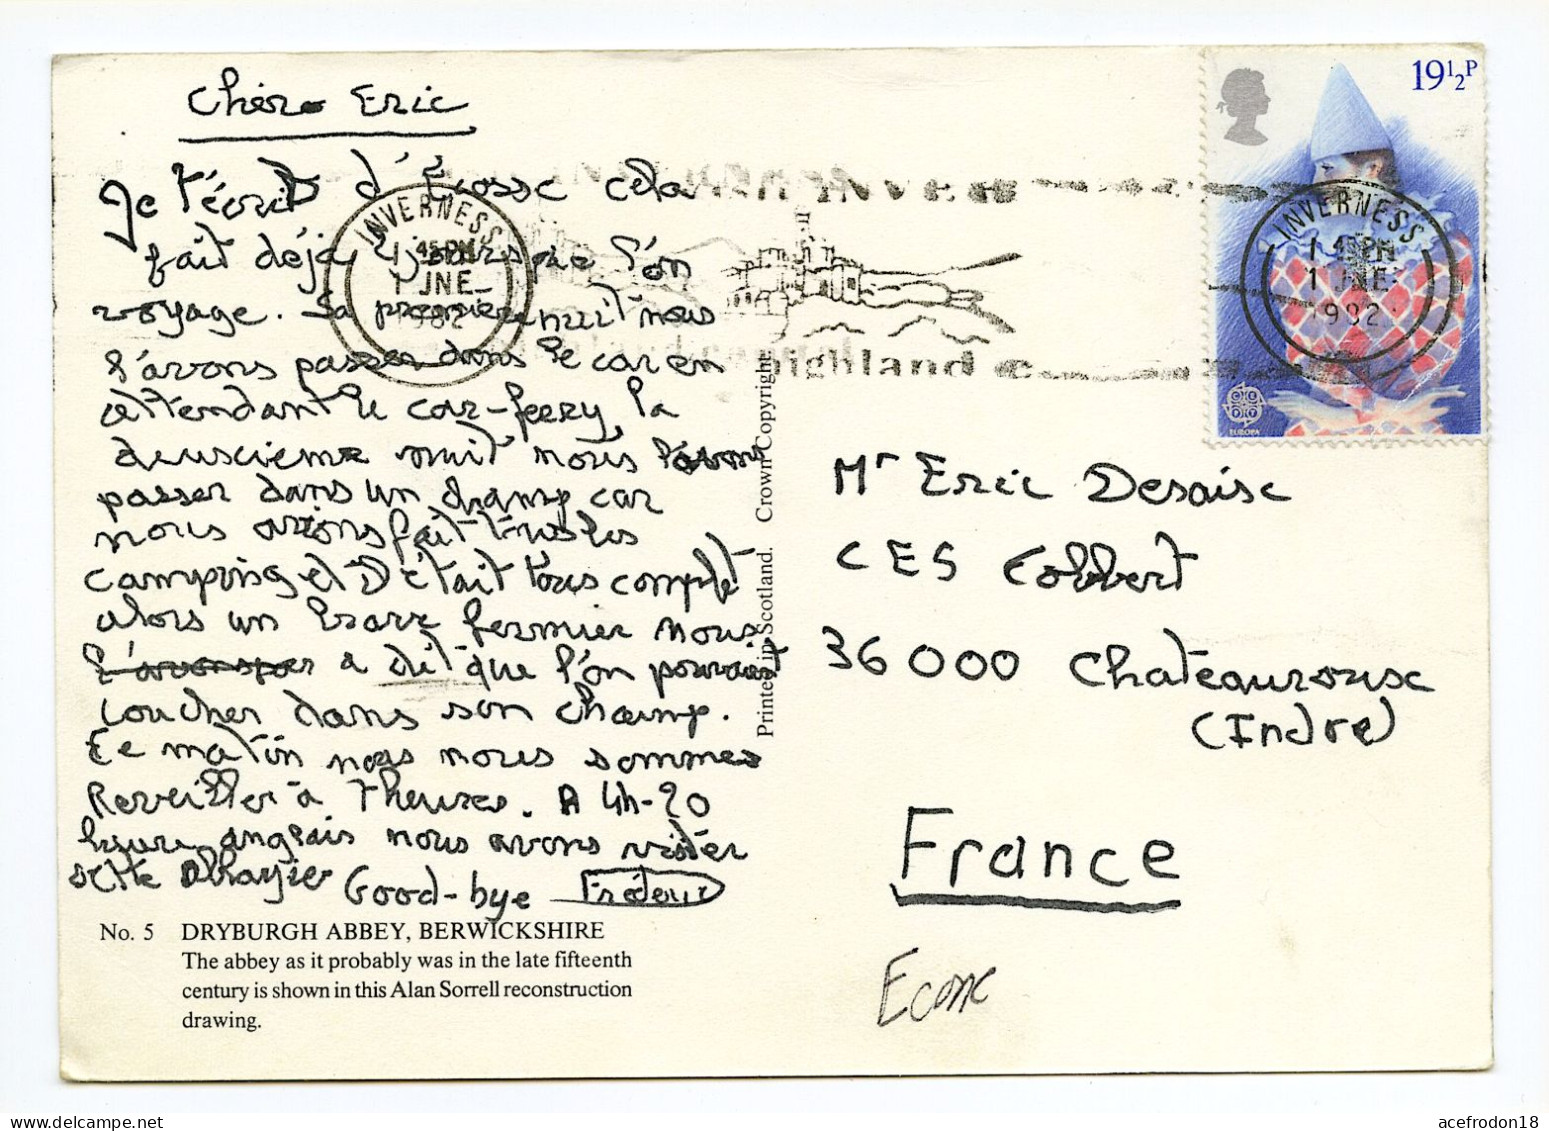 Chère Eric
Je t'écrit d'Écosse cela
fait déjà 2 jours que l'on
voyage. Sa première nuit nous
l'avons passer dans le car en
attendant le car-feery la
deuxieme nuit nous l'avons
passer dans un champ car
nous avions fait tous les
camping et c'était tous complet
alors un brave fermier nous
a dit que l'on pouvait
coucher dans son champ.
Ce matin nous nous sommes
Reveiller à 7 heures. A 4h-20
heure anglais nous avons visiter
sette abbayier Good-bye Fréderic
No. 5 DRYBURGH ABBEY, BERWICKSHIRE
The abbey as it probably was in the late fifteenth
century is shown in this Alan Sorrell reconstruction
drawing.
Printed in Scotland. Crown Copyright.
INVERNESS
1 45 PM
1 JNE
1982
highland
19½P
EUROPA
INVERNESS
1 45 PM
1 JNE
1982
Mr Eric Desaise
CES Colbert
36000 Chateauroux
(Indre)
France
acefrodon18